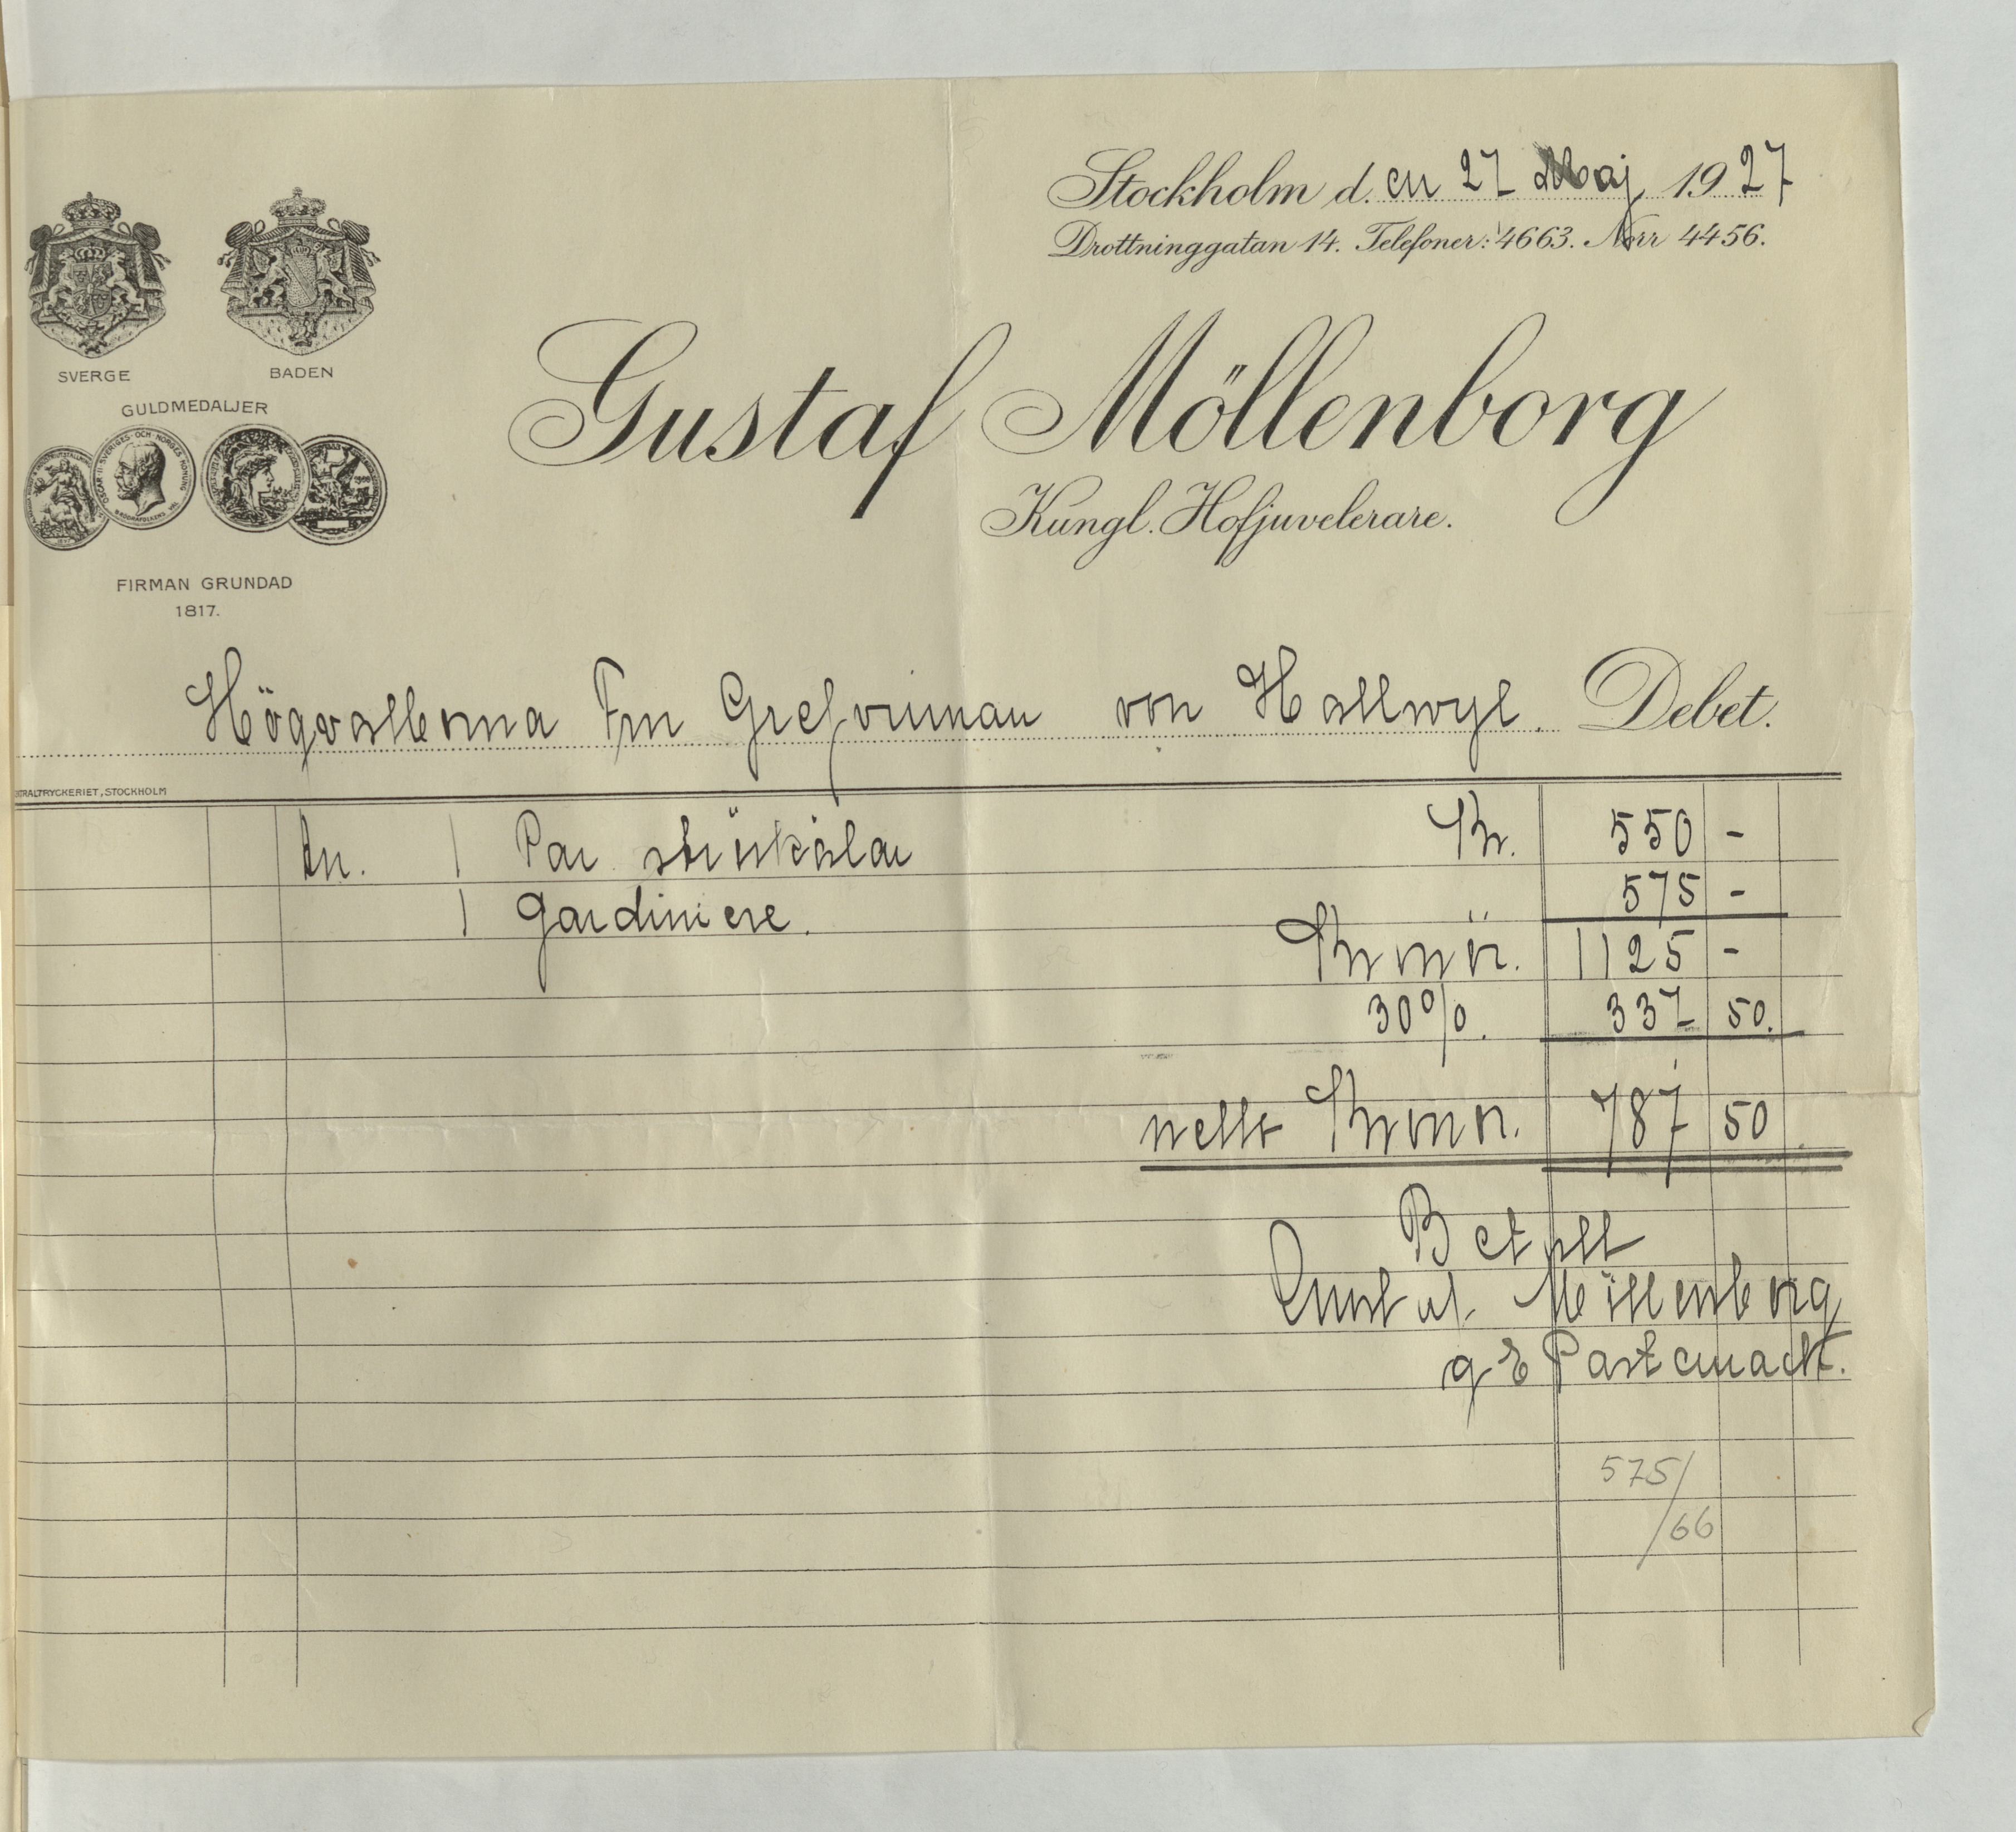 Stockholm d. en 27 Maj 1927
Drottninggatan 14. Telefoner: 4663. Norr 4456.
SVERGE
BADEN
GULDMEDALJER
OSCAR II SVERIGES OCH NORGES KONUNG
FIRMAN GRUNDAD
1817.
Gustaf Möllenborg
Kungl. Hofjuvelerare.
Högvälborna Fru Grefvinnan von Hallwyl. Debet.
TRALTRYCKERIET, STOCKHOLM
An. 1 Par strükålar Kr. 550 -
1 Gardiniere. 575 -
Kronor. 1125 -
30%. 337 50.
netto Kronor. 787 50
Betalt
Gustaf Möllenborg
g E Pastemach.
575/
/66